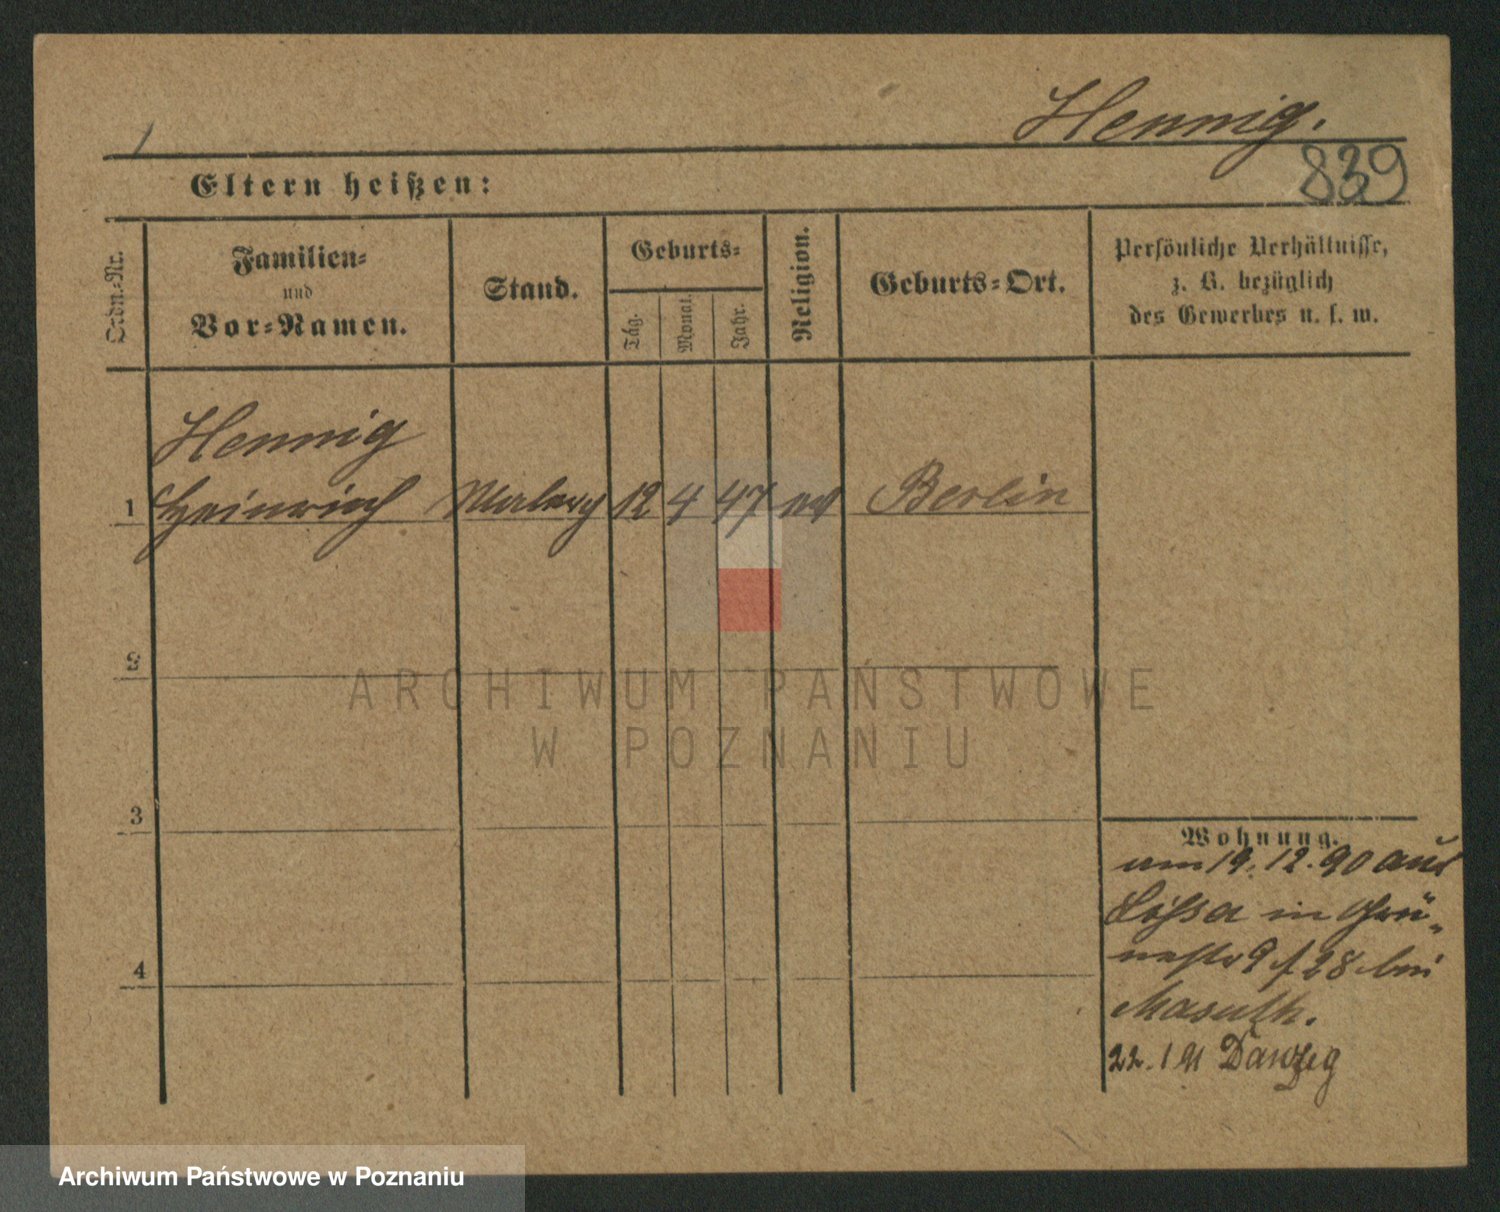 Hennig.
839
Eltern heißen:
Ordn.-Nr.
Familien-
und
Vor-Namen.
Stand.
Geburts-
Tag.
Monat.
Jahr.
Religion.
Geburts-Ort.
Persönliche Verhältnisse,
z. B. bezüglich
des Gewerbes u. s. w.
Hennig
1 Heinrich 12 4 47 ev Berlin
2
3
4
Wohnung.
am 19.12.90 aus
in Grü-
nestr 9 f 28 bei
Masuth.
22. 1 91 Danzig
ARCHIWUM PAŃSTWOWE
W POZNANIU
Archiwum Państwowe w Poznaniu